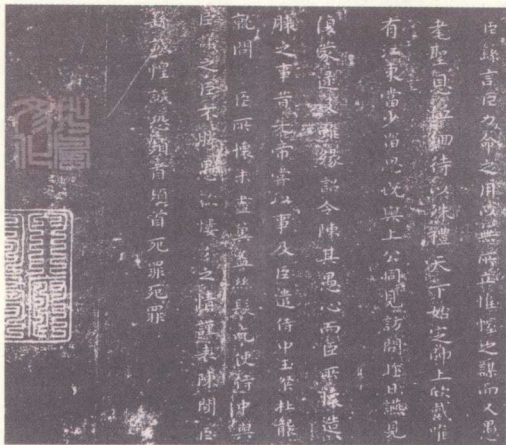 臣繇言臣力命之用以無所立惟幄之謀而又愚
耄聖恩低徊待以殊禮天下始定帥土欣戴唯
有江東當少留思既與上公同見訪問昨日疏見
復蒙逮及雖緣詔令陳其愚心而臣所懷造
膝之事昔先帝嘗以事及臣遣侍中王粲杜襲
就問臣所懷未盡冀益絲髮乞使侍中與
臣議之臣不勝愚款悽悽之情謹表陳聞臣
繇誠惶誠恐頓首頓首死罪死罪